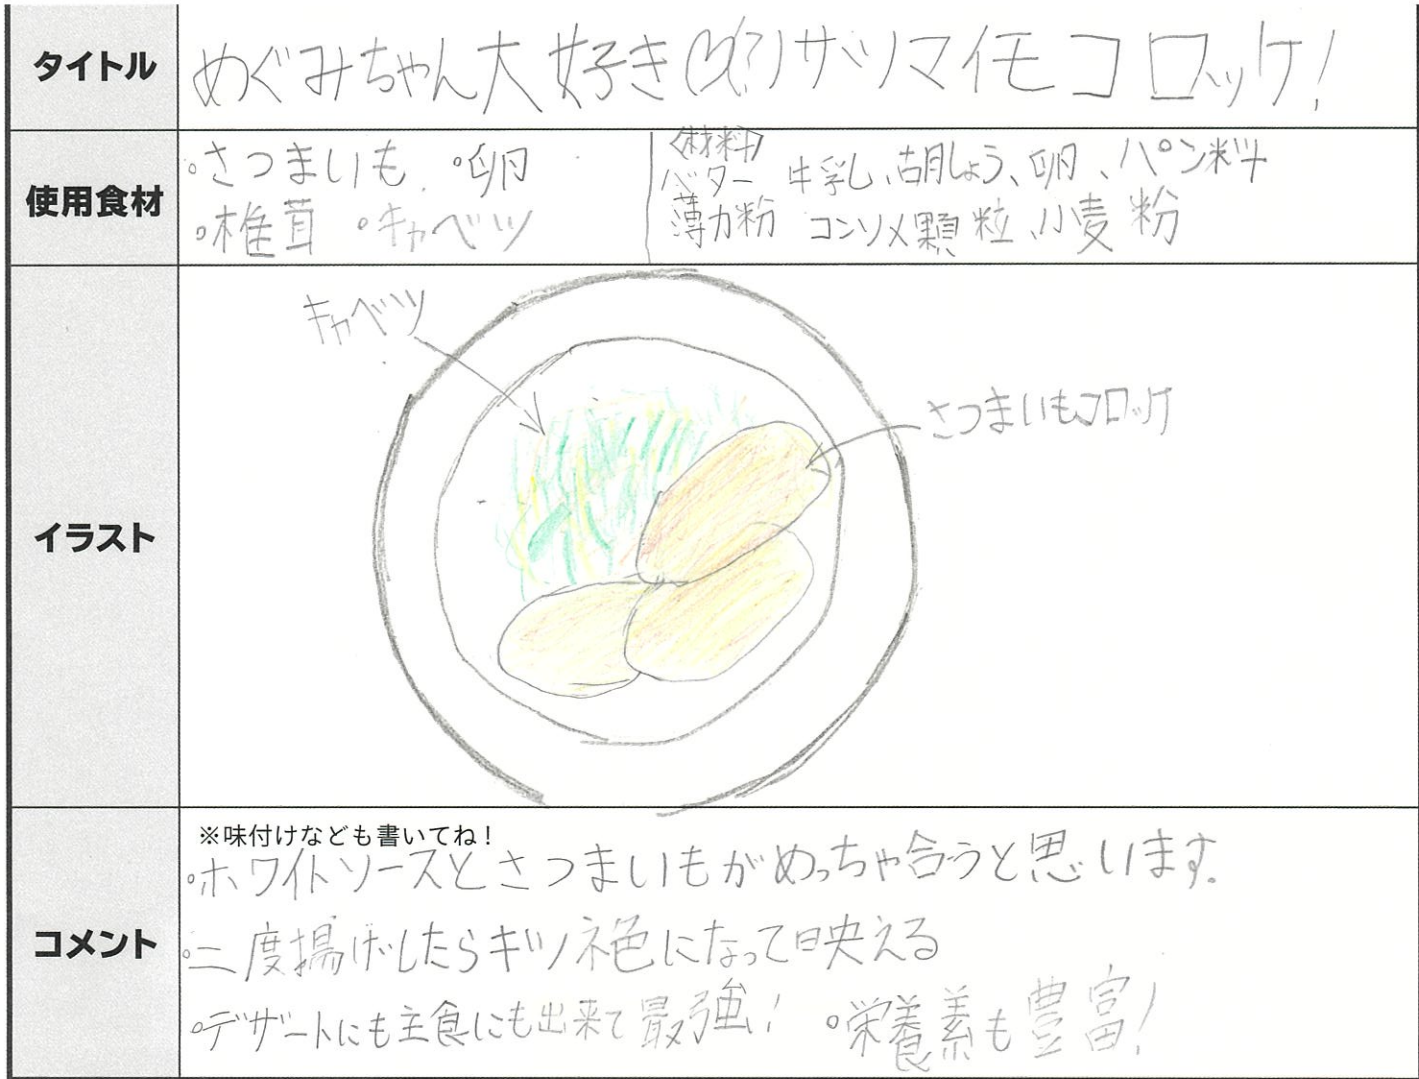 タイトル
めぐみちゃん大好き♡(?)サツマイモコロッケ!
使用食材
・さつまいも ・卵
・椎茸 ・キャベツ
〈材料〉
バター 牛乳、胡しょう、卵、パン粉
薄力粉 コンソメ顆粒、小麦粉
イラスト
キャベツ
さつまいもコロッケ
コメント
※味付けなども書いてね!
・ホワイトソースとさつまいもがめっちゃ合うと思います。
・二度揚げしたらキツネ色になって映える
・デザートにも主食にも出来て最強! ・栄養素も豊富!